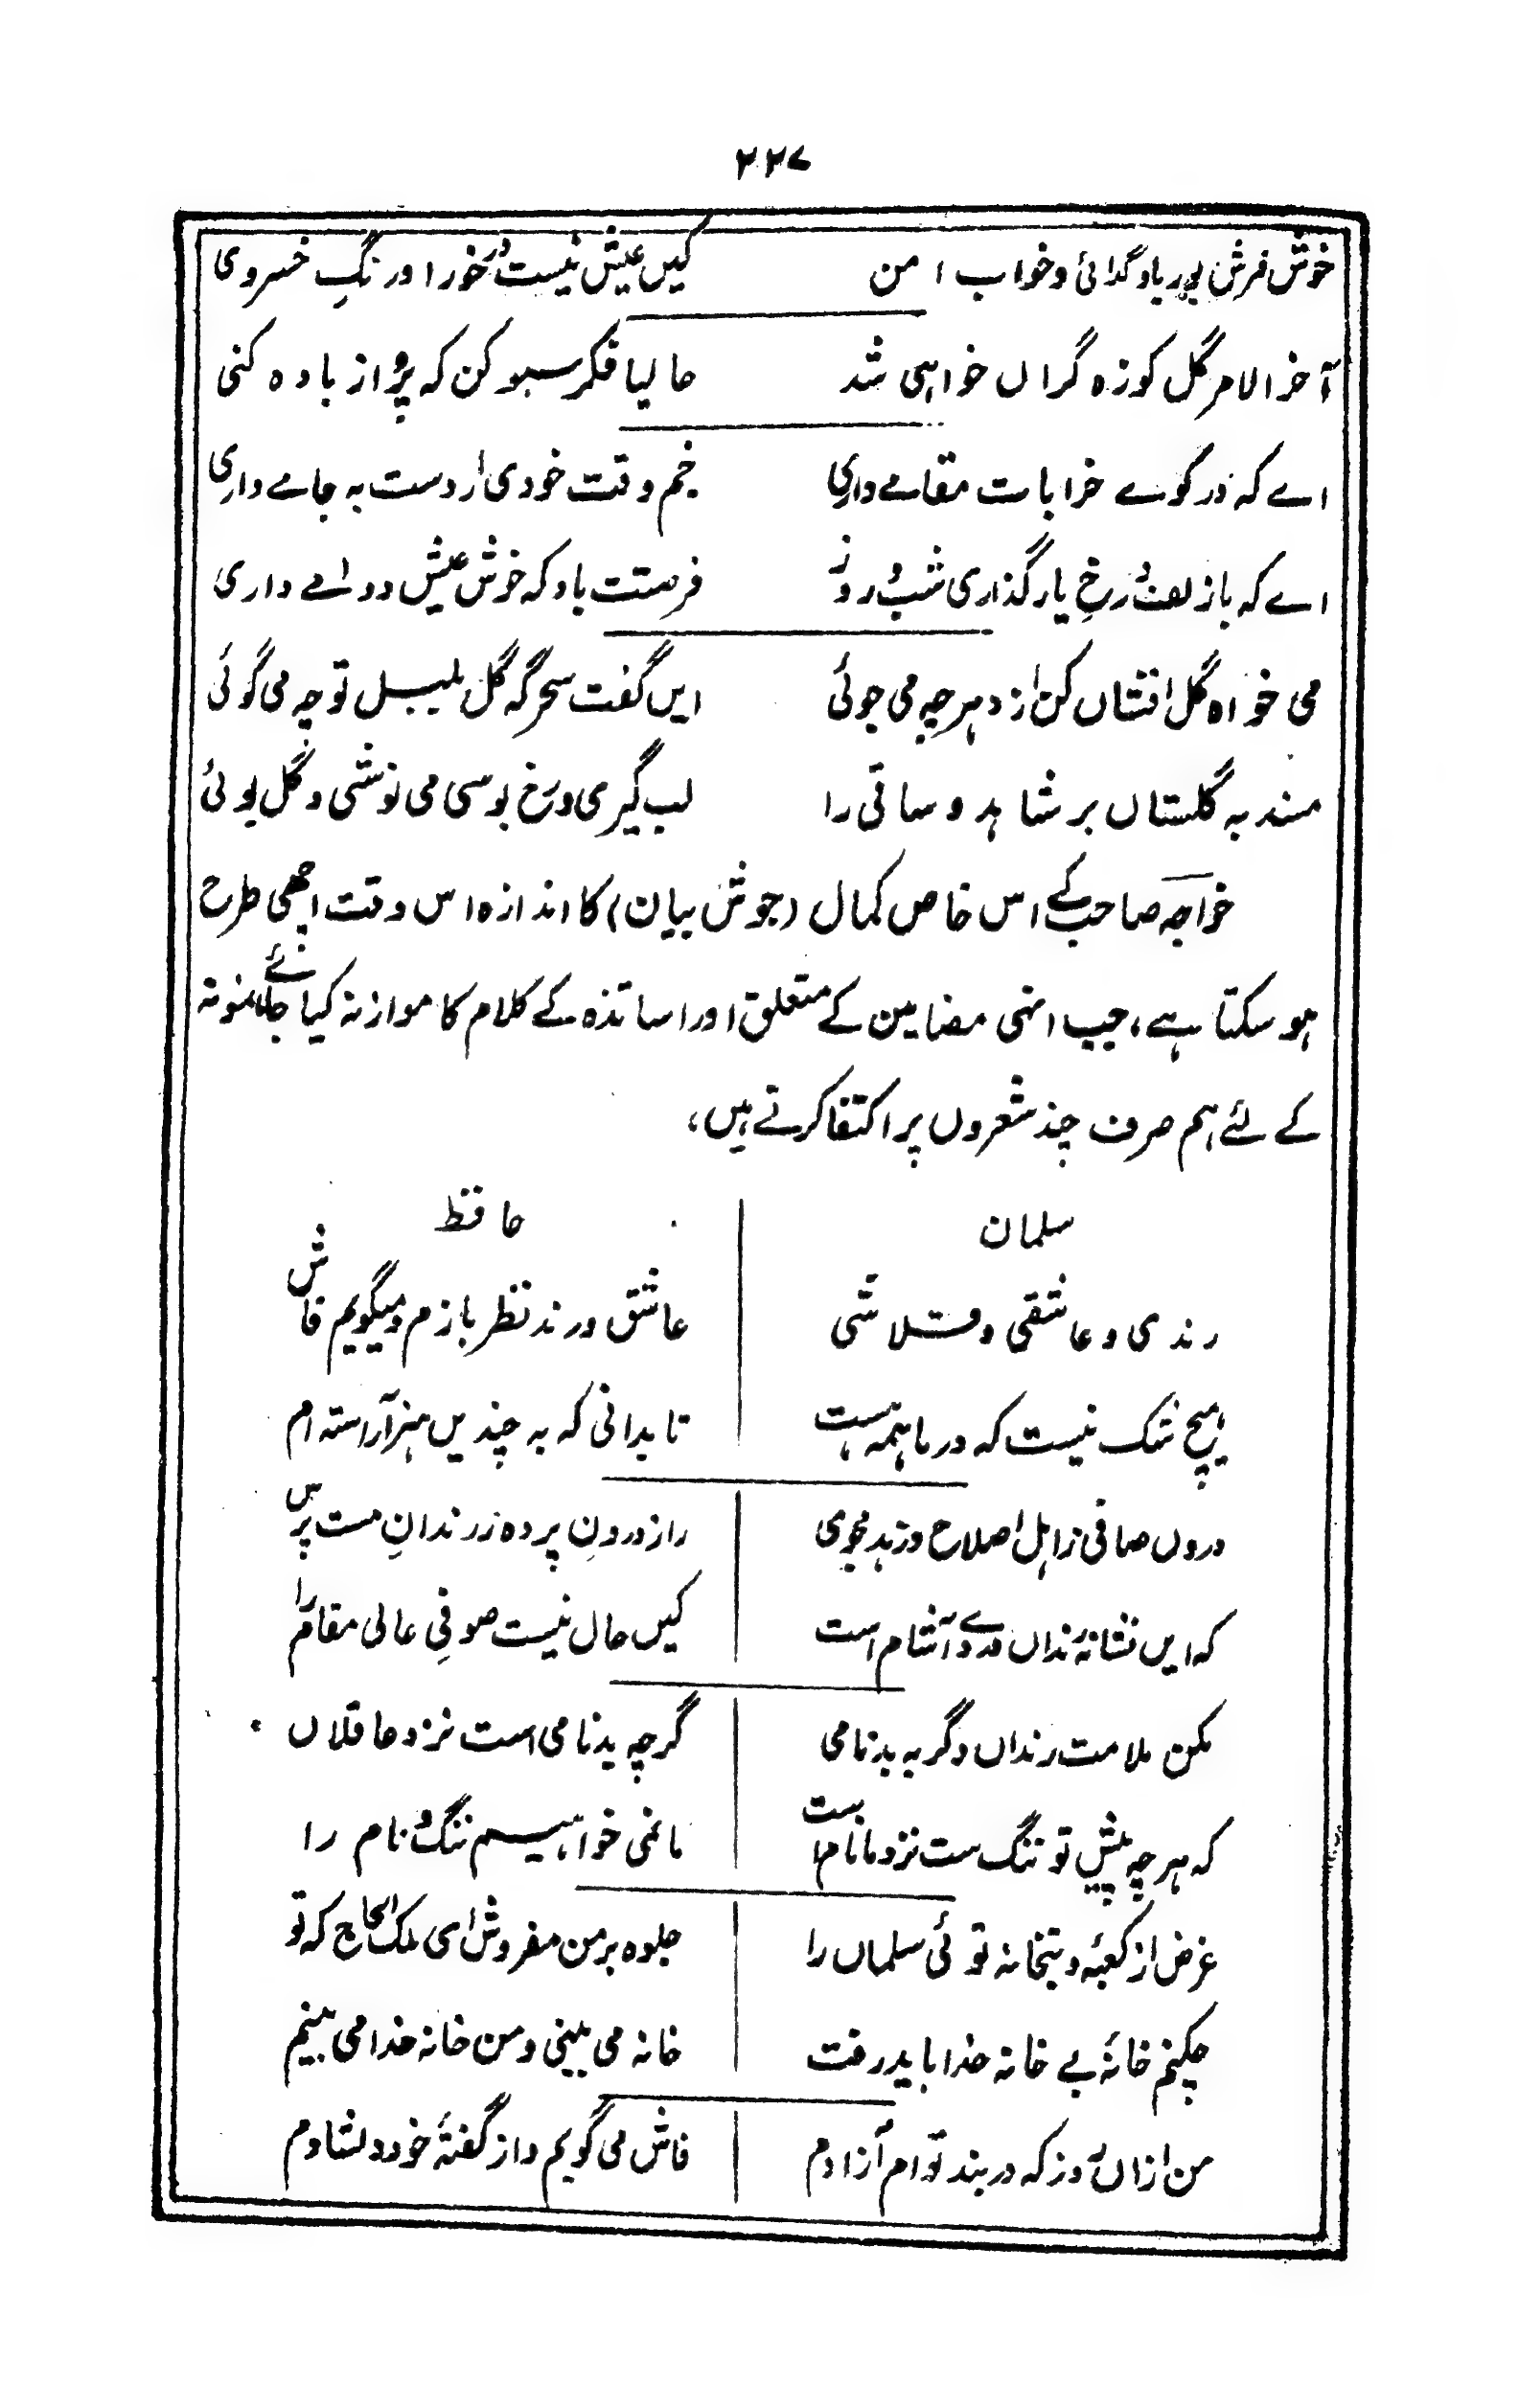 ۲۲۷
خوش فرش بوریا و گدائی و خواب امن کیں عیش نیست در خور اورنگِ خسروی
آخر الامر گل کوزہ گراں خواہی شد حالیا فکر سبو کن کہ پُر از بادہ کنی
اے کہ در کوے خرابات مقامے داری جم وقت خودی ار دست بہ جامے داری
اے کہ با زلف و رخِ یار گذاری شب و روز فرصتت باد کہ خوش عیش دوامے داری
می خواہ گل افشاں کن از دہر چہ می جوئی ایں گفت سحر گہ گل بلبل تو چہ می گوئی
مسند بہ گلستاں بر شاہد و ساقی را لب گیری و رخ بوسی می نوشی و گل بوئی
خواجہ صاحب کے اس خاص کمال (جوش بیان) کا اندازہ اس وقت اچھی طرح
ہو سکتا ہے، جب انہی مضامین کے متعلق اور اساتذہ کے کلام کا موازنہ کیا جائے، نمونہ
کے لئے ہم صرف چند شعروں پر اکتفا کرتے ہیں،
سلمان حافظ
رندی و عاشقی و قلاشی عاشق و رند نظر بازم و میگویم فاش
ہیچ شک نیست کہ در ما ہمہ ہست تا بدانی کہ بہ چندیں ہنر آراستہ ام
دروں صافی ز اہل اصلاح و زہد مجوی راز درونِ پردہ ز رندانِ مست پرس
کہ ایں نشانۂ رنداں دُردے آشام است کیں حال نیست صوفیِ عالی مقام را
مکن ملامت رنداں و گر بہ بدنامی گرچہ بدنامی است نزد عاقلاں
کہ ہر چہ پیش تو ننگ ست نزد ما نام است ما نمی خواہیم ننگ و نام را
غرض از کعبہ و بتخانہ توئی سلماں را جلوہ بر من مفروش ای ملک الحاج کہ تو
چکنم خانۂ بے خانہ خدا باید رفت خانہ می بینی و من خانہ خدا می بینم
من ازاں روز کہ در بند تو ام آزادم فاش می گویم و از گفتۂ خود دلشادم